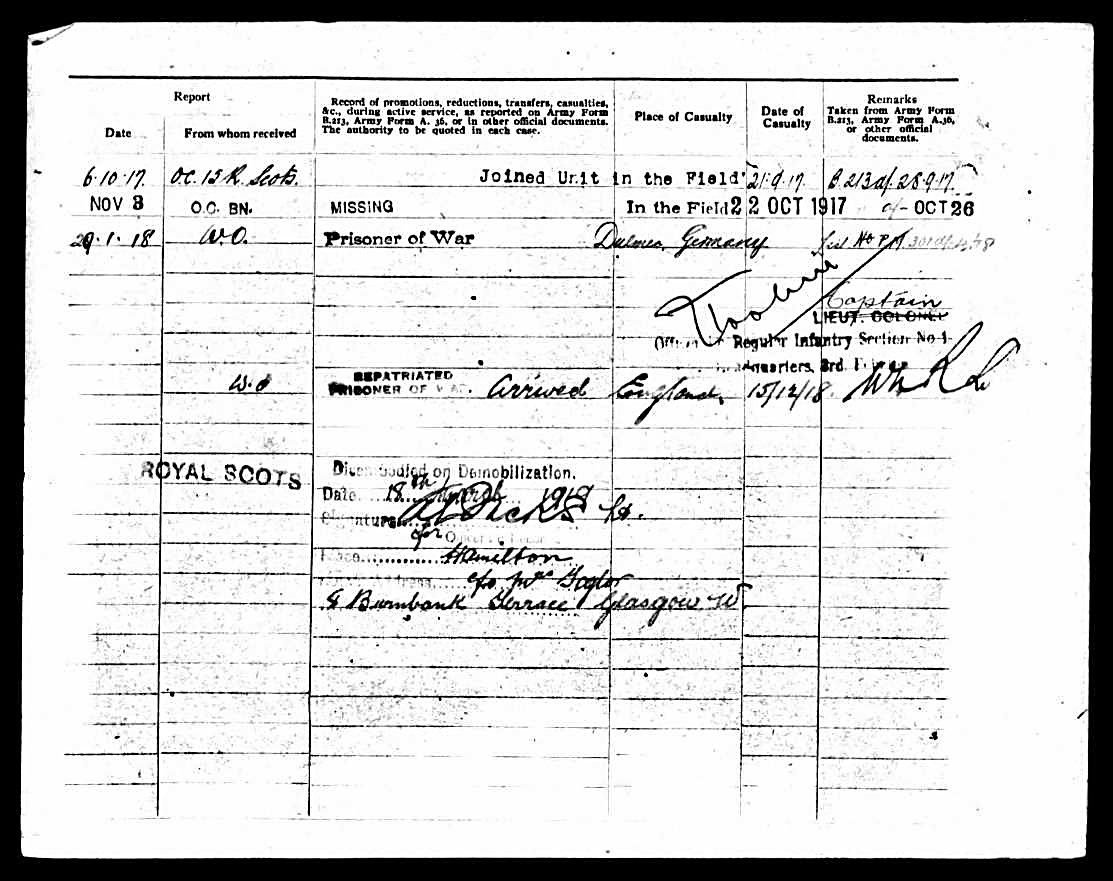 Report
Date
From whom received
Record of promotions, reductions, transfers, casualties,
&c., during active service, as reported on Army Form
B.213, Army Form A. 36, or in other official documents.
The authority to be quoted in each case.
Place of Casualty
Date of
Casualty
Remarks
Taken from Army Form
B.213, Army Form A.36,
or other official
documents.
6.10.17. O.C. 15 R. Scots. Joined Unit in the Field 21.9.17 B.213 d/. 28.9.17.
NOV 3 O.C. BN. MISSING In the Field 22 OCT 1917 OCT 26
29.1.18 W.O. Prisoner of War Germany
Captain
LIEUT. COLONEL
Regular Infantry Section No 1
Headquarters, 3rd.
W.O REPATRIATED
PRISONER OF WAR. arrived England. 15/12/18.
ROYAL SCOTS
Disembodied on Demobilization.
Date 18th March 1919
Signature
for
Place Hamilton
c/o Mrs
Burnbank Terrace Glasgow W.